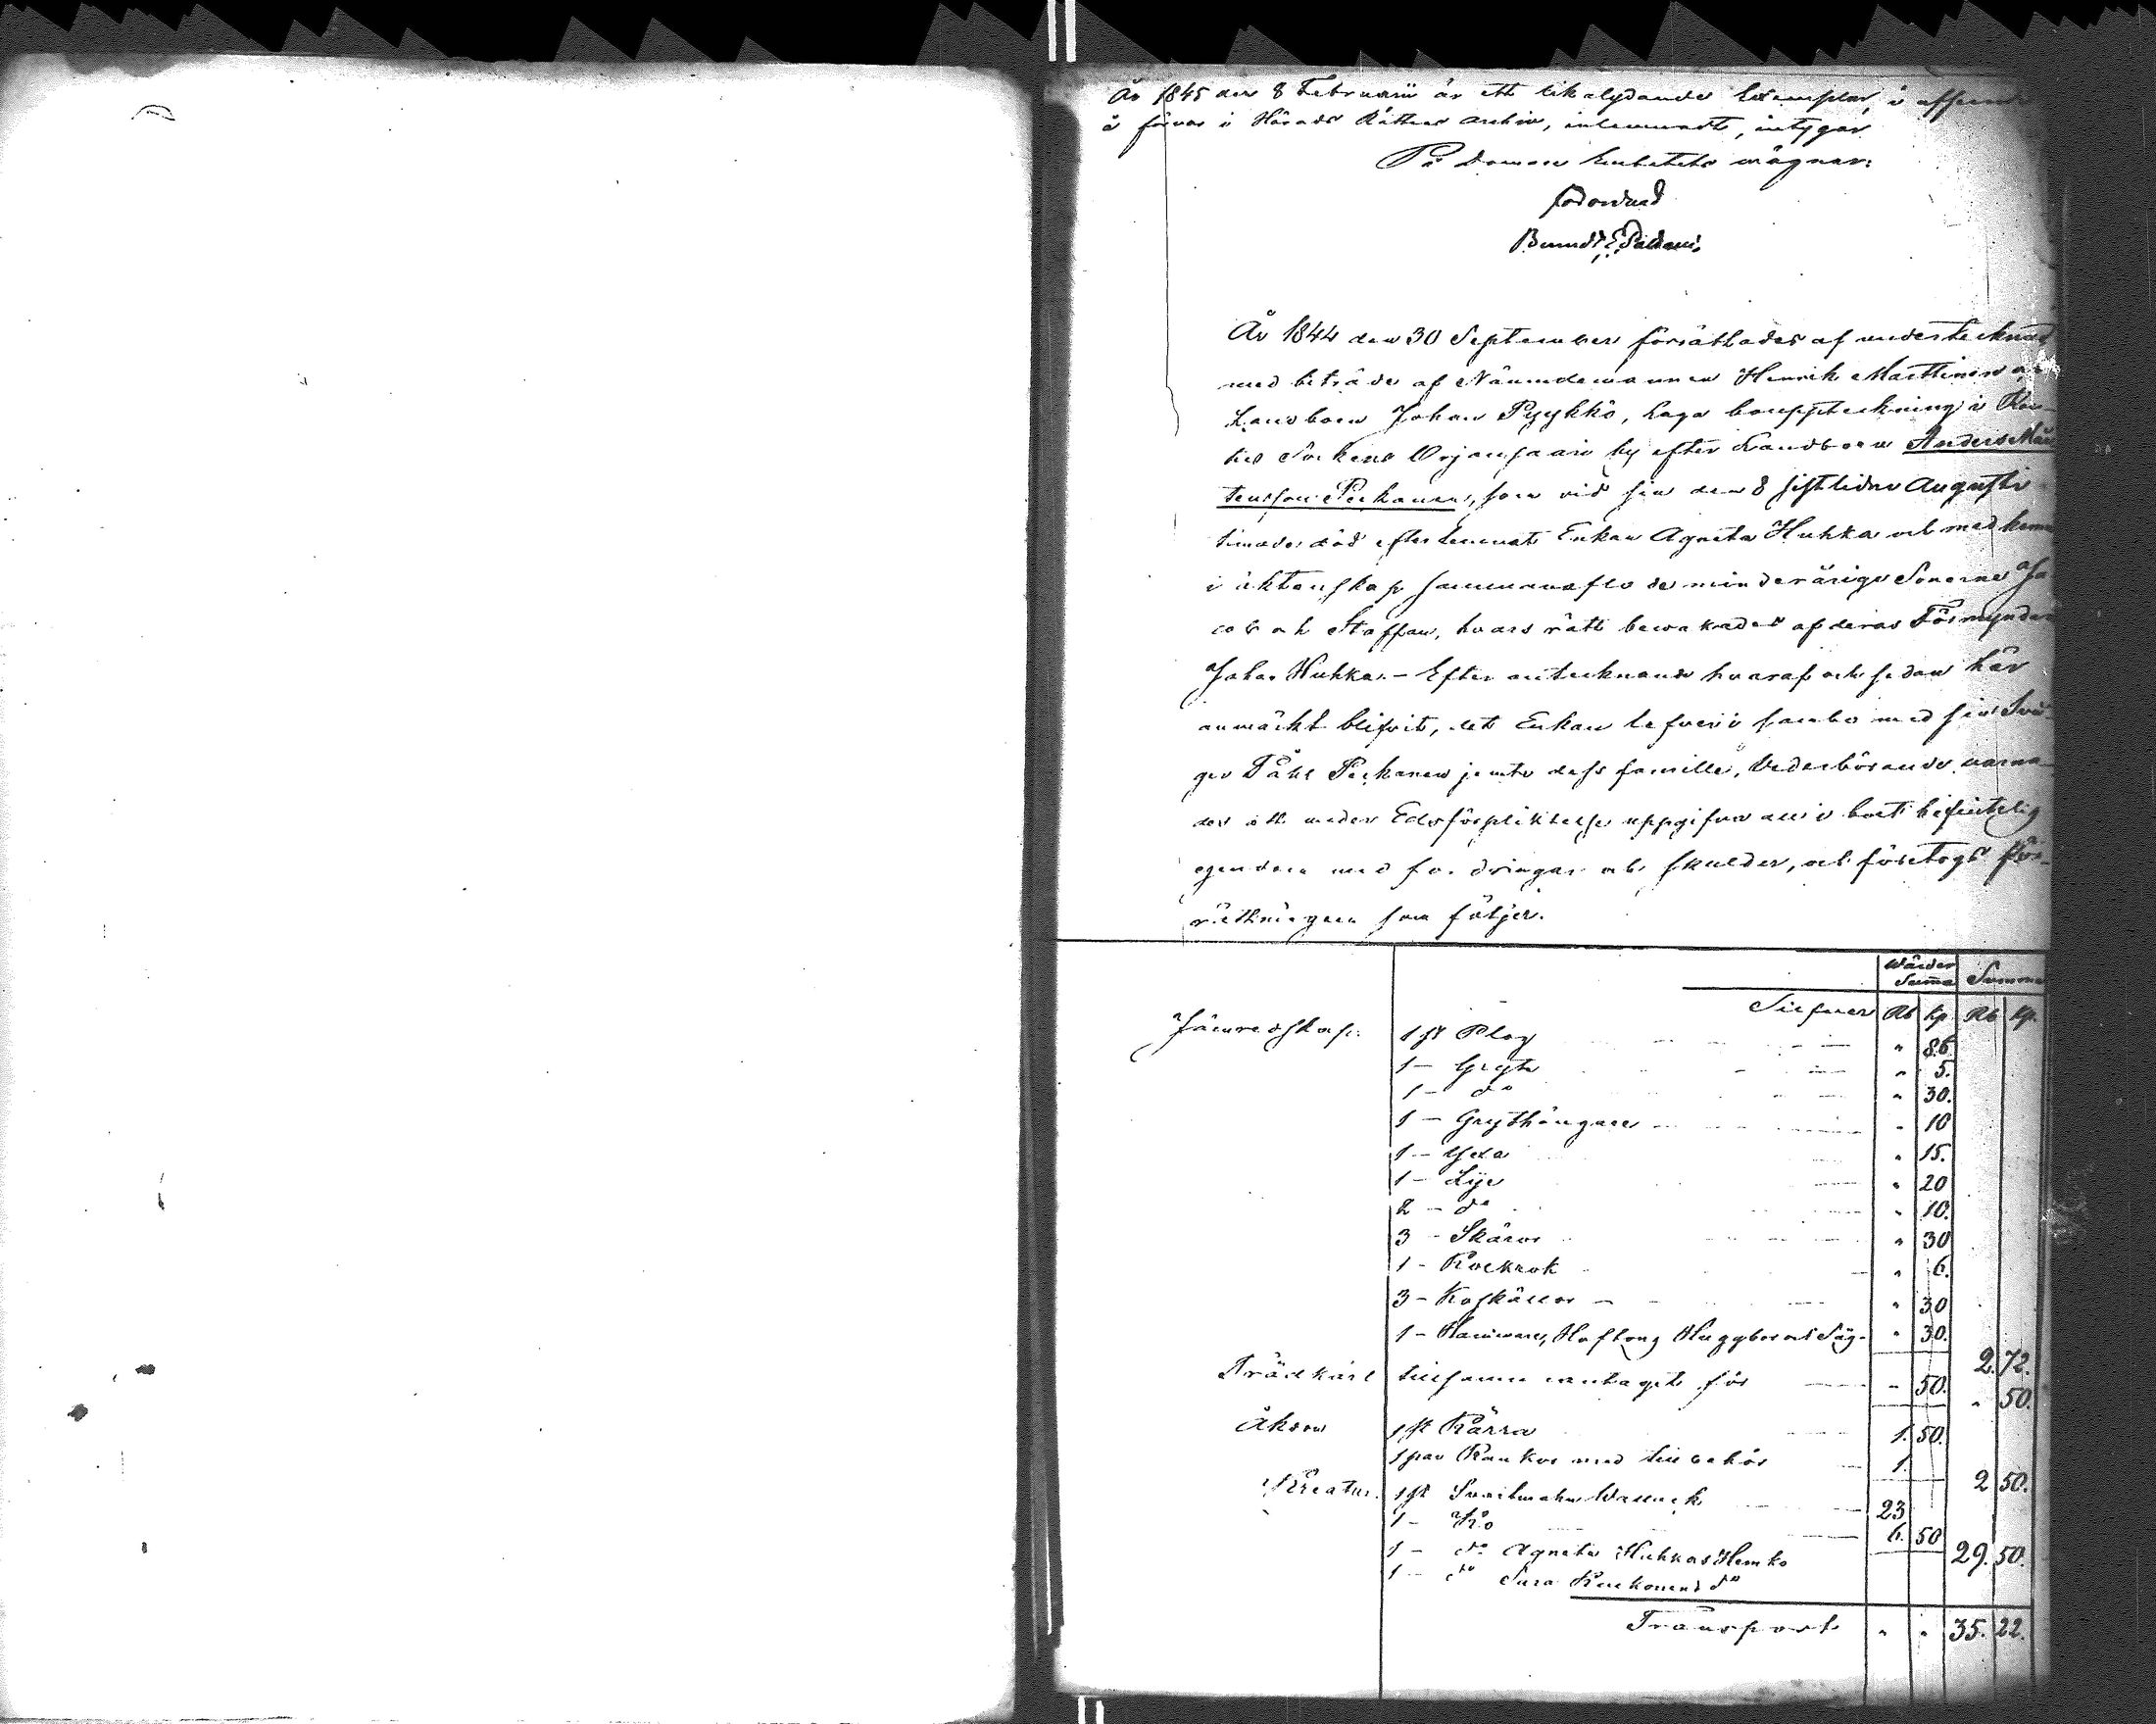 År 1845 den 8 Februarii är ett likalydande Exemplar,
å förvar i Härads Rättens archiv, inlemnadt, intygar
På Domare Embetets vägnar:
År 1844 den 30 September förrättades af undertecknad
med biträde af Nämndemannen Henrik Marttinen och
Landboen Johan Pyykkö, laga bouppteckning i
Sockens by efter Landboen Anders Mår
tensson Peckanen, som vid sin den 8 sistlidne Augusti
timade död efterlemnat Enkan Agneta Huhka och med henne
i äktenskap sammanaflade minderåriga Sönerne Ja
cob och Staffan, hvars rätt bewakades af deras Förmyndare
Johan Huhka. – Efter antecknande hvaraf och sedan här
anmärkt blifvit, att Enkan lefver i sambo med sin Svå-
ger Påhl Peckanen jemte dess famille, Vederbörande varna-
des att under Edsförpliktelse uppgifva all i boet befintelig
egendom med fordringar och skulder, och företogs för-
rättningen som följer.
Wärder Summa Summa
Silfver Rb Kp Rb Kp.
Järnredskap. 1 st Plog " 86.
1 – Gryta " 5.
1 – do " 30.
1 – Grythängare " 10
1 – Yxa " 15.
1 – Lije " 20
2 – do " 10.
3 – Skäror " 30
1 – Rockrok " 6.
3 – Koskällor " 30
1 – Hammare, Hoftong Huggbor och Såg " 30.
2. 72.
Trädkärl tillsamman antagits för – 50. " 50.
Åkdon 1 st Kärra 1. 50.
1 par Rankor med tillbehör 1.
2 50.
Kreatur. 1 st Wallack 23
1 – Ko 6. 50
29. 50.
1 – do Agneta Huhkas Hemko
1 – do Sara do
Transport " " 35. 22.